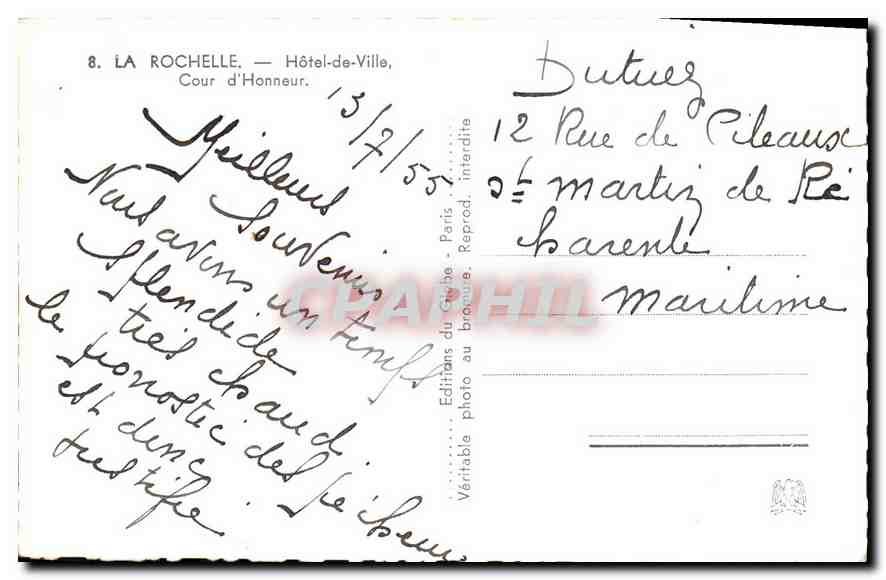 8. LA ROCHELLE. — Hôtel-de-Ville,
Cour d'Honneur.
13/7/55
Meilleurs
Souvenirs
Nous avons un temps
splendide
très chaud.
le pronostic des pêcheurs
est donc
justifié
Editions du Globe - Paris
Véritable photo au bromure. Reprod. interdite
Dutuez
12 Rue de Cileaux
St Martin de Ré
Charente
Maritime
CPAPHIL